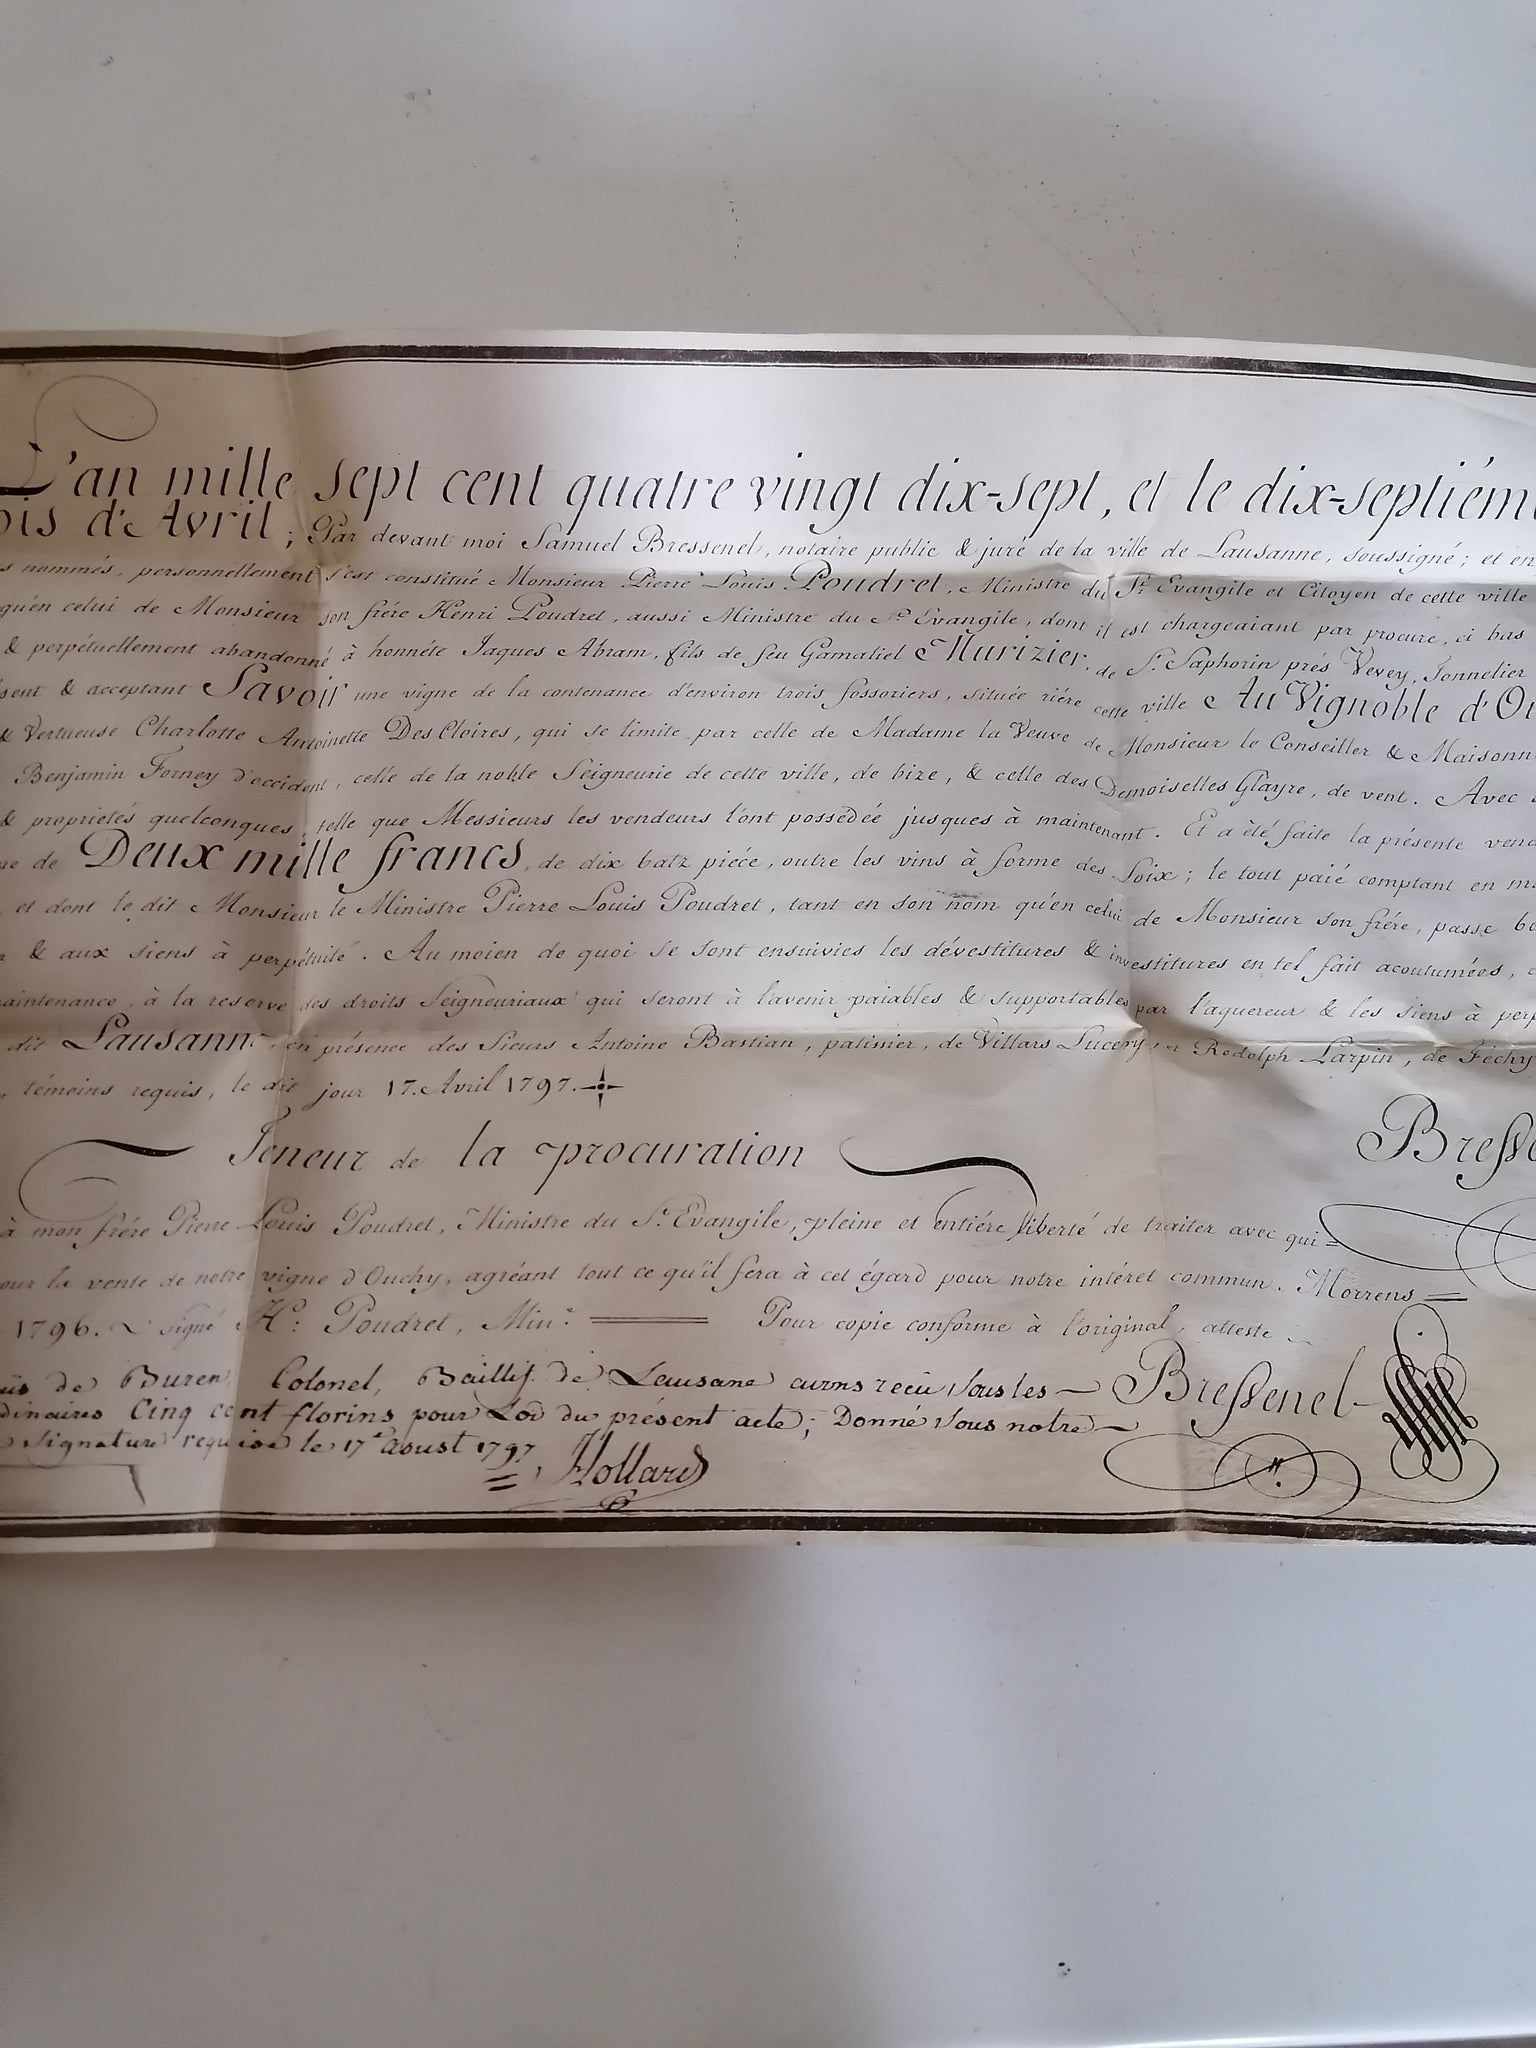 L'an mille sept cent quatre vingt dix-sept, et le dix-septiém
ois d'Avril; Par devant moi Samuel Bressenel, notaire public & juré de la ville de Lausanne, soussigné; et en
s nommés, personnellement s'est constitué Monsieur Pierre Louis Poudret, Ministre du St. Evangile et Citoyen de cette ville
qu'en celui de Monsieur son frére Henri Poudret, aussi Ministre du St. Evangile, dont il est chargeaiant par procure, ci bas
& perpétuellement abandonné à honnéte Jaques Abram, fils de feu Gamaliel Murizier, de St. Saphorin prés Vevey, Tonnelier
sent & acceptant Savoir une vigne de la contenance d'environ trois fossoriers, située riére cette ville Au Vignoble d'Ou
& Vertueuse Charlotte Antoinette DesCloires, qui se limite par celle de Madame la Veuve de Monsieur le Conseiller & Maisonn
Benjamin Forney d'occident, celle de la noble Seigneurie de cette ville, de bize, & celle des Demoiselles Glayre, de vent. Avec
& propriétés quelconques, telle que Messieurs les vendeurs l'ont possédée jusques à maintenant. Et a èté faite la présente ven
me de Deux mille francs, de dix batz piéce, outre les vins à forme des Loix; le tout paié comptant en
, et dont le dit Monsieur le Ministre Pierre Louis Poudret, tant en son nom qu'en celui de Monsieur son frére, passe
& aux siens à perpétuité. Au moien de quoi se sont ensuivies les dévestitures & investitures en tel fait acoutumées,
aintenance, à la reserve des droits Seigneuriaux qui seront à l'avenir païables & supportables par l'aquereur & les siens à perp
dit Lausanne, en présence des Sieurs Antoine Bastian, patissier, de Villars Lucens, et Rodolph Larpin, de Féchy
, témoins requis, le dit jour 17. Avril 1797.
Bresse
Teneur de la procuration
à mon frére Pierre Louis Poudret, Ministre du St. Evangile, pleine et entiére liberté de traiter avec qui=
our la vente de notre vigne d'Ouchy, agréant tout ce qu'il fera à cet égard pour notre intéret commun. Morrens
1796. signé H: Poudret, Min.e Pour copie conforme à l'original, atteste
Bressenel
de Buren, Colonel, Baillif de Lausane avons reçu sous les
dinaires Cinq cent florins pour Lod du présent acte; Donné sous notre
signature requise le 17e aoust 1797
Hollard